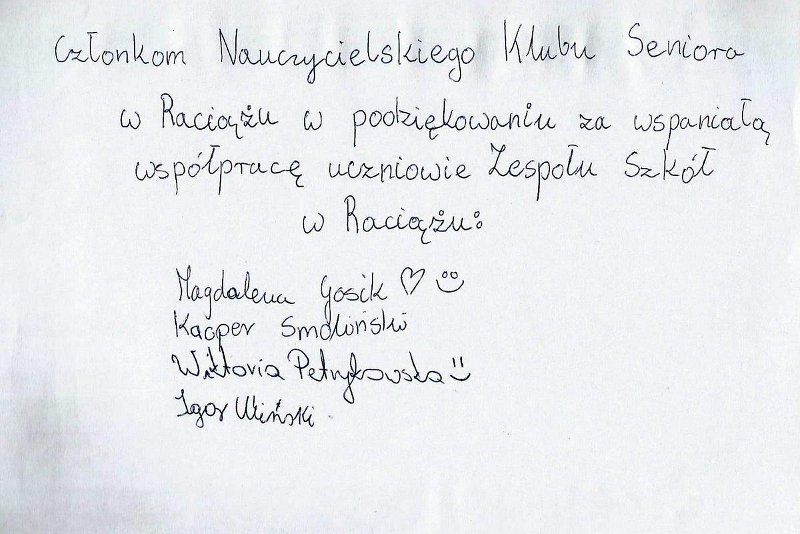 Członkom Nauczycielskiego Klubu Seniora
w Raciążu w podziękowaniu za wspaniałą
współpracę uczniowie Zespołu Szkół
w Raciążu:
Magdalena Gosik ♡
Kacper Smoliński
Wiktoria Petrykowska
Igor